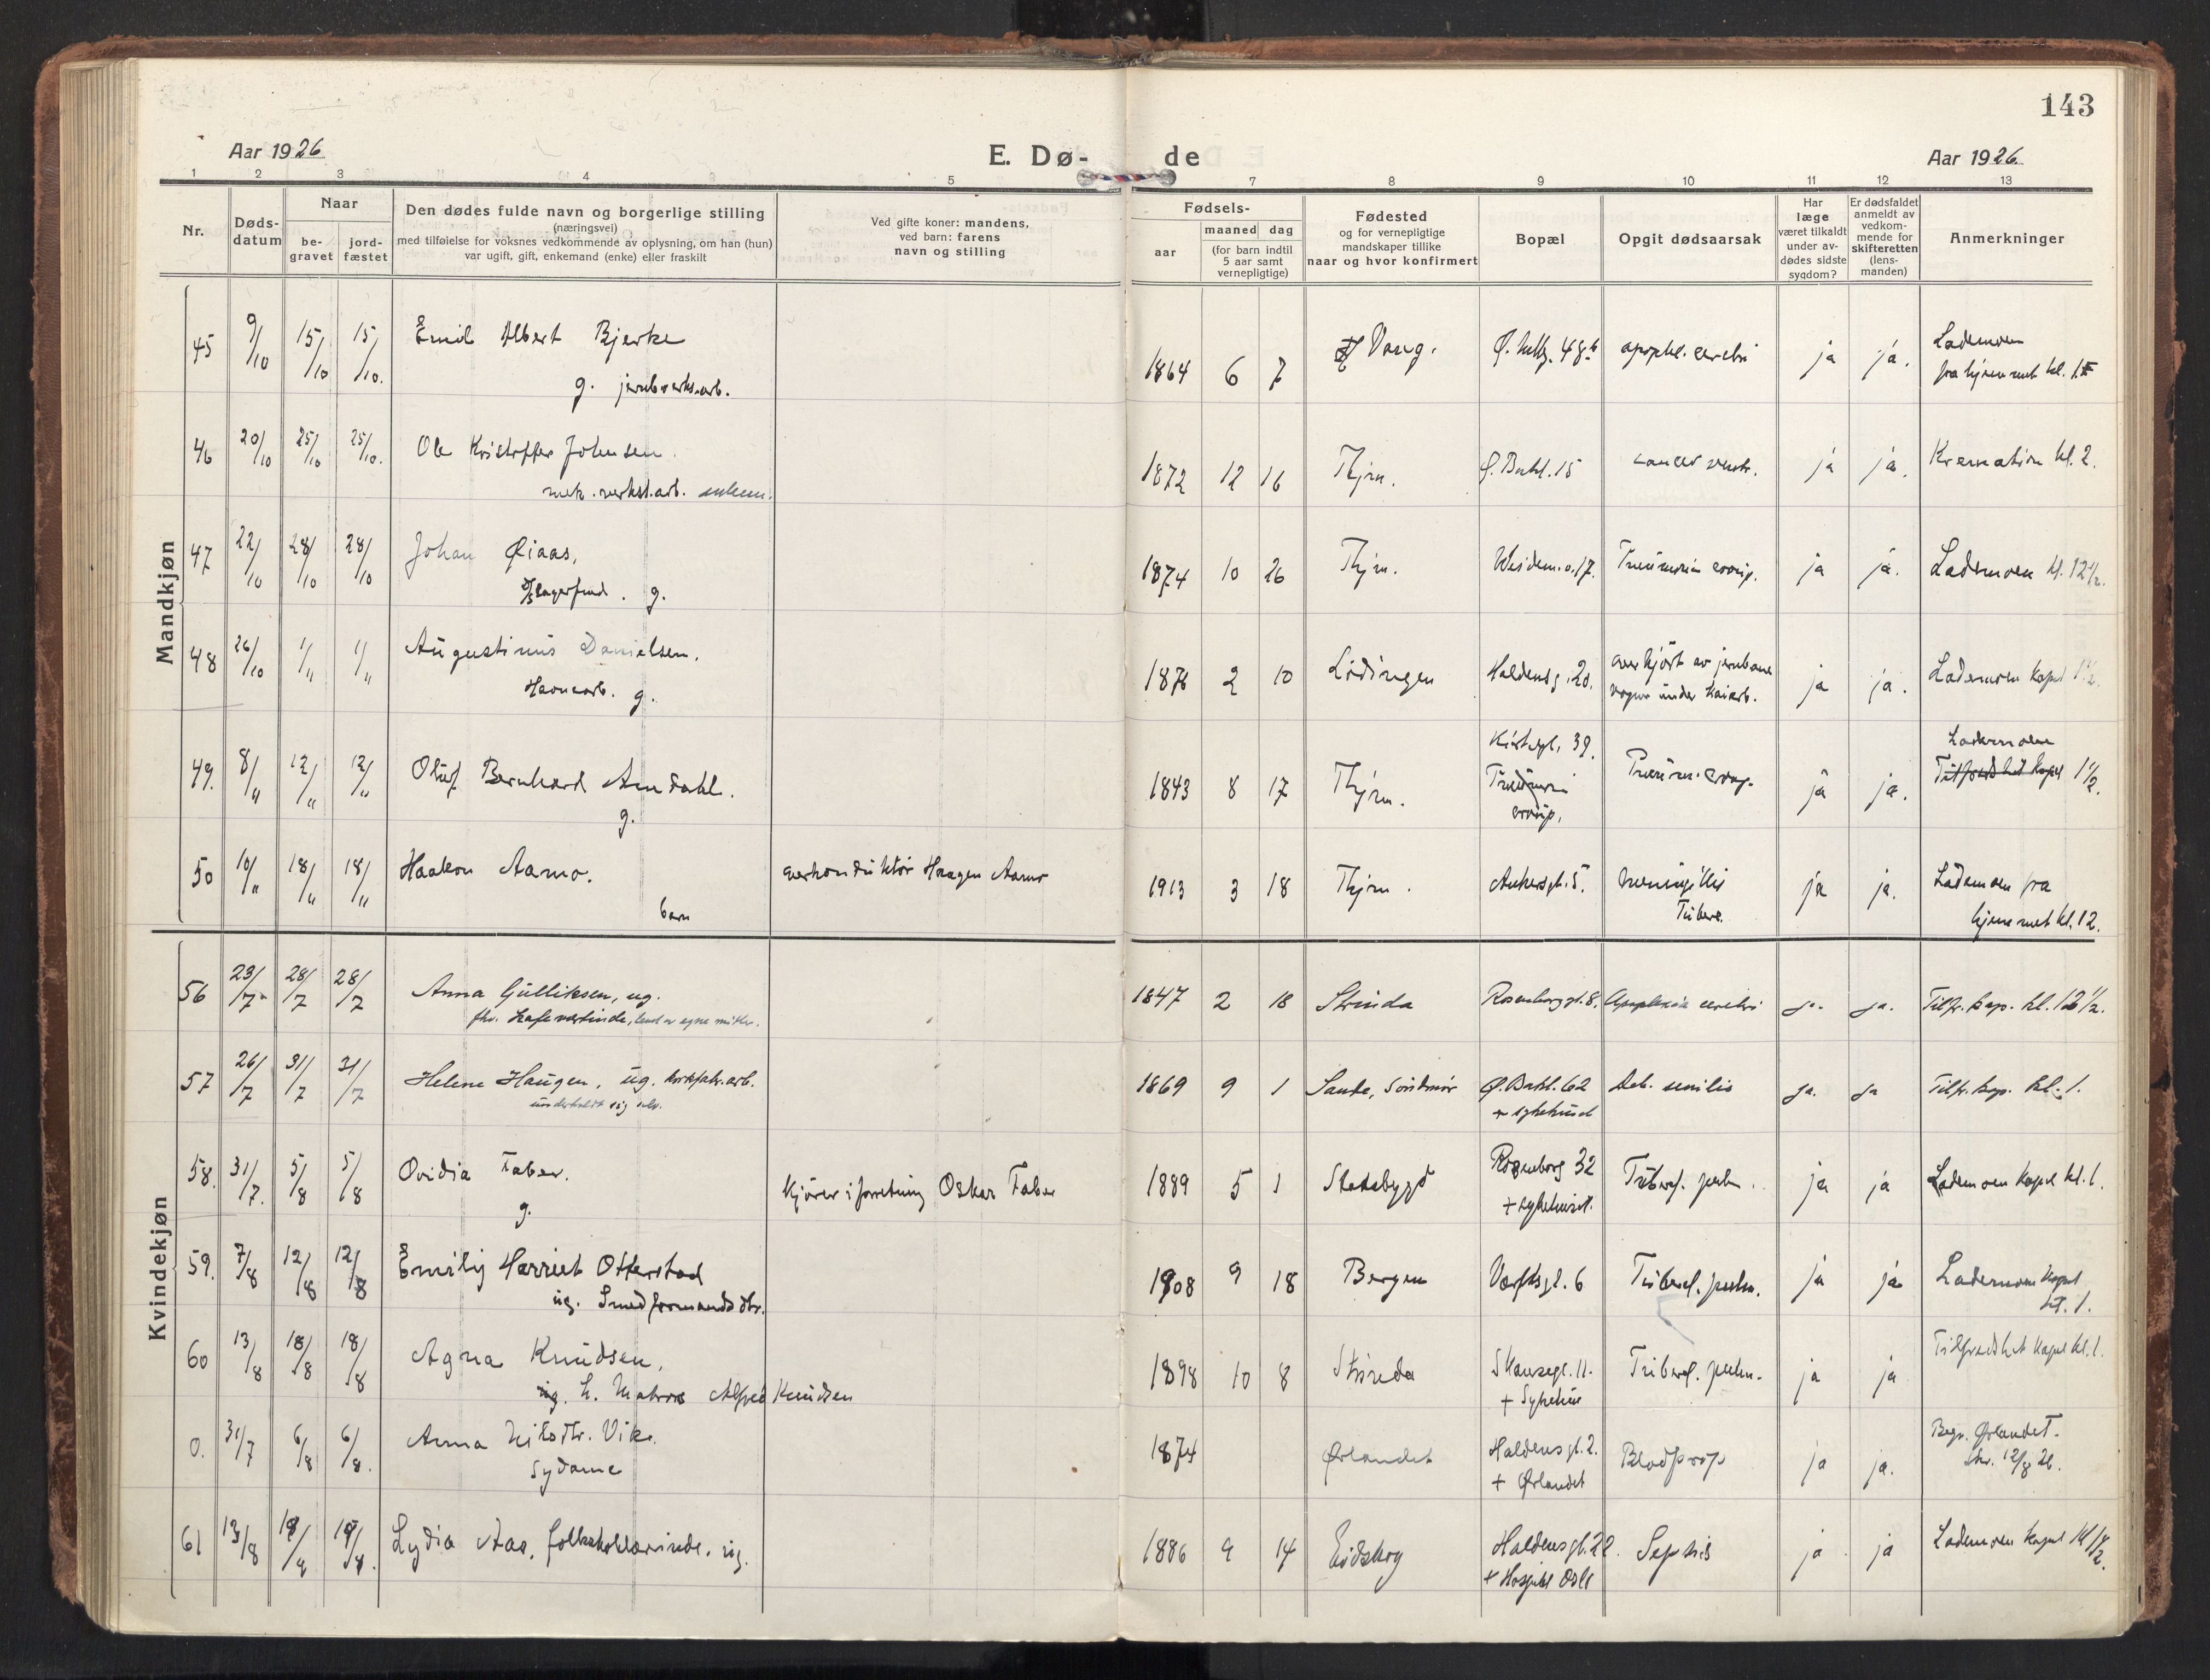 143
Aar 1926
E. Dø-
de
Aar 1926.
1 2 3 4 5 7 8 9 10 11 12 13
Nr.
Døds-
datum
Naar
be-
gravet
jord-
fæstet
Den dødes fulde navn og borgerlige stilling
(næringsvei)
med tilføielse for voksnes vedkommende av oplysning, om han (hun)
var ugift, gift, enkemand (enke) eller fraskilt
Ved gifte koner: mandens,
ved barn: farens
navn og stilling
Fødsels-
aar
maaned dag
(for barn indtil
5 aar samt
vernepligtige)
Fødested
og for vernepligtige
mandskaper tillike
naar og hvor konfirmert
Bopæl
Opgit dødsaarsak
Har
læge
været tilkaldt
under av-
dødes sidste
sygdom?
Er dødsfaldet
anmeldt av
vedkom-
mende for
skifteretten
(lens-
manden)
Anmerkninger
Mandkjøn
45 9/10 15/10 15/10. Emil Albert Bjerke 1864 6 7 Vang. apopl. cerebri ja ja. Lademoen
g. jernverksarb. fra hjemmet kl. 1
46 20/10 25/10 25/10. Ole Kristoffer Johnsen. 1872 12 16 Thjm. Ø. Bakl. 15 cancer ventr. ja ja. Kremation kl. 2.
mek. verkst.arb. enkem.
47 22/10 28/10 28/10 Johan Øiaas, 1874 10 26 Thjm. Weidem.v. 17. Pneumoni croup. ja ja. Lademoen kl. 12 1/2.
g.
48 26/10 1/11 1/11 Augustinus Danielsen. 1876 2 10 Lødingen Haldensg. 20. overkjørt av jernbane ja ja. Lademoen kapel 1 1/2.
Havnearb. g. vogner under kaiarb.
49. 8/11 12/11 12/11 Oluf Bernhard Amdahl. 1843 8 17 Thjm. Kirkegt. 39. Pneumoni croup. ja ja. Lademoen
g. Pneumoni croup. Tilfredshet kapel 1 1/2.
50 10/11 18/11 18/11 Haakon Aamo. overkonduktør Haagen Aamo 1913 3 18 Thjm. Ankersgt. 5. Meningitis ja ja. Lademoen fra
barn Tuberc. hjemmet kl. 12.
Kvindekjøn
56 23/7 28/7 28/7 Anna Gulliksen, ug. 1847 2 18 Strinda Rosenborggt. 8. Apoplexia cerebri ja. ja. Tilfr. kap. kl. 12 1/2.
fhv. kafevertinde, levet av egne midler.
57 26/7 31/7 31/7 Helene Haugen, ug. korkfabr.arb. 1869 9 1 Sande, Søndmør Ø. Bakl. 62 Deb. senilis ja. ja Tilfr. kap. kl. 1.
underholdt sig selv. + sykehuset
58. 31/7. 5/8 5/8 Ovidia Faber. kjører i forretning Oskar Faber 1889 5 1 Stadsbygd Rosenborg 32 Tubercl. pulm. ja ja Lademoen kapel kl. 1.
g. + sykehuset.
59. 7/8 12/8 12/8 Emily Harriet Otterstad 1908 9 18 Bergen Verftsgt. 6 Tubercl. pulm. ja ja Lademoen kapel
ug. Smedformands dtr. kl. 1.
60 13/8 18/8 18/8 Agna Knudsen, 1898 10 8 Strinda Skansegt. 11. Tubercl. pulm. ja ja Tilfredshet kapel kl. 1.
ug. h. Matros Alfred Knudsen + Sykehus
0. 31/7 6/8 6/8. Anna Nilsdtr. Vik. 1874 Ørlandet Haldensgt. 2. Blodprop ja ja. Begr. Ørlandet.
Sydame + Ørlandet Skr. 12/8 26.
61 13/8 19/8 19/8. Lydia Aas, folkeskolelærerinde. ug. 1886 9 14 Eidskog Haldensgt. 22. Sepsis ja ja Lademoen kapel kl 1 1/2.
+ Hospital Oslo